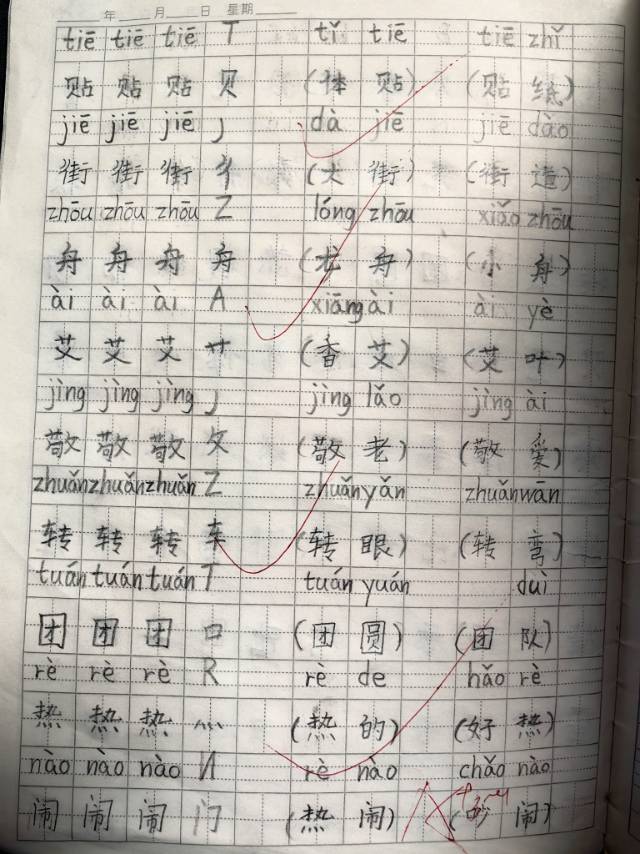 年 月 日 星期
tiē tiē tiē T tǐ tiē tiē zhǐ
贴 贴 贴 贝 (体 贴) (贴 纸)
jiē jiē jiē J dà jiē jiē dào
街 街 街 彳 (大 街) (街 道)
zhōu zhōu zhōu Z lóng zhōu xiǎo zhōu
舟 舟 舟 舟 (龙 舟) (小 舟)
ài ài ài A xiāng ài ài yè
艾 艾 艾 艹 (香 艾) (艾 叶)
jìng jìng jìng J jìng lǎo jìng ài
敬 敬 敬 攵 (敬 老) (敬 爱)
zhuǎn zhuǎn zhuǎn Z zhuǎn yǎn zhuǎn wān
转 转 转 车 (转 眼) (转 弯)
tuán tuán tuán T tuán yuán duì
团 团 团 口 (团 圆) (团 队)
rè rè rè R rè de hǎo rè
热 热 热 灬 (热 的) (好 热)
nào nào nào N rè nào chǎo nào
闹 闹 闹 门 (热 闹) ( 闹)